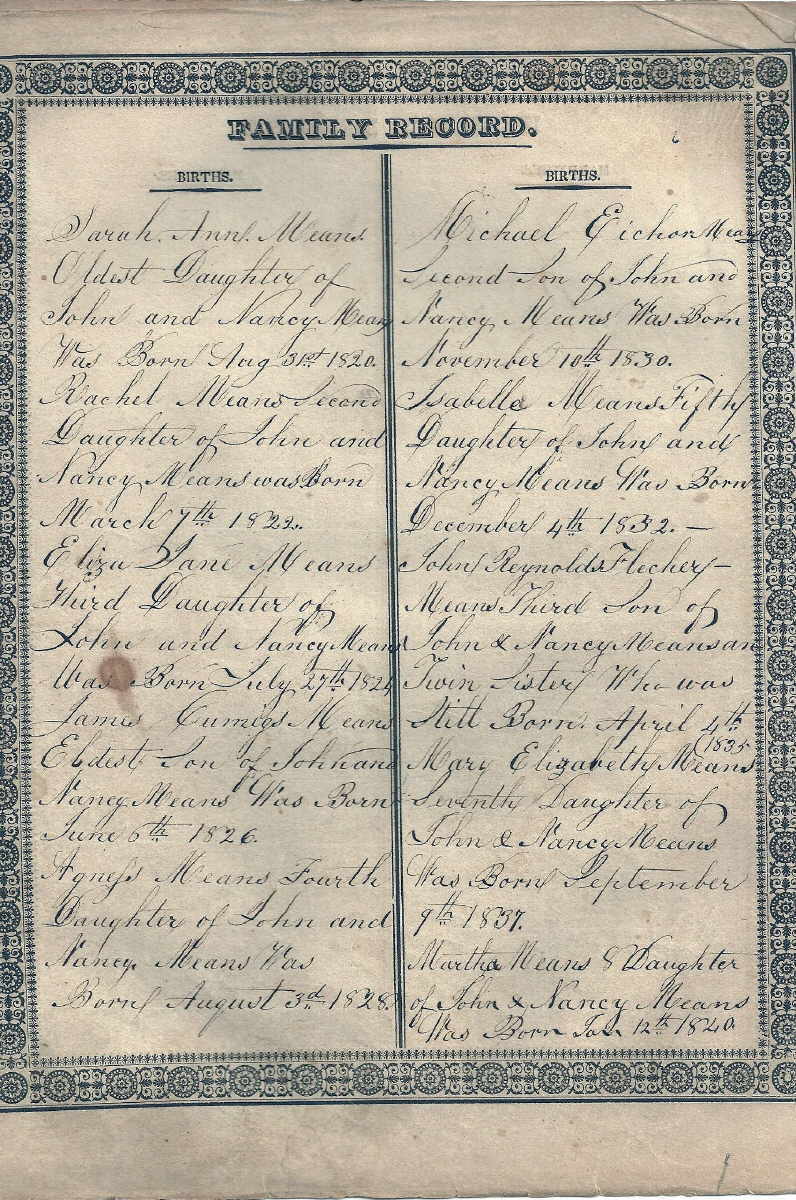 FAMILY RECORD.
BIRTHS.
Sarah. Ann. Means.
Oldest Daughter of
John and Nancy Means
Was Born Aug 31st 1820.
Rachel Means Second
Daughter of John and
Nancy Means was Born
March 7th 1822.
Eliza Jane Means
Third Daughter of
John and Nancy Means
Was Born July 27th 1824
James Cumigs Means
Eldest Son of John and
Nancy Means Was Born
June 6th 1826.
Agness Means Fourth
Daughter of John and
Nancy. Means Was
Born August 3d 1828.
BIRTHS.
Michael Eichor Means
Second Son of John and
Nancy Means Was Born
November 10th 1830.
Isabella Means Fifth
Daughter of John and
Nancy Means Was Born
December 4th 1832. —
John Reynolds Flecher —
Means Third Son of
John & Nancy Means an
Twin Sister Who was
Still Born. April 4th
1835
Mary Elizabeth Means
Seventh Daughter of
John & Nancy Means
Was Born September
9th 1837.
Martha Means 8 Daughter
of John & Nancy Means
Was Born Jan 12th 1840.